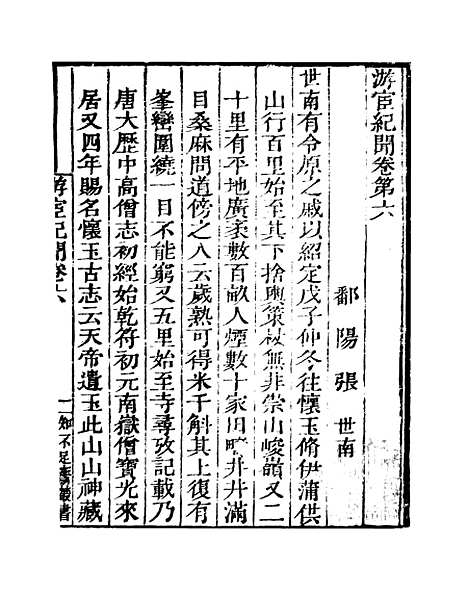 游宦紀聞卷第六
鄱陽張 世南
世南有令原之戚以紹定戊子仲冬往懷玉脩伊蒲供
山行百里始至其下捨輿策杖無非崇山峻嶺又二
十里有平地廣袤數百畝人煙數十家田疇井井滿
目桑麻問道傍之人云歲熟可得米千斛其上復有
峯巒圍繞一目不能窮又五里始至寺尋攷記載乃
唐大歷中高僧志初經始乾符初元南嶽僧寶光來
居又四年賜名懷玉古志云天帝遺玉此山山神藏
游宦紀聞卷六
一 知不足齋叢書